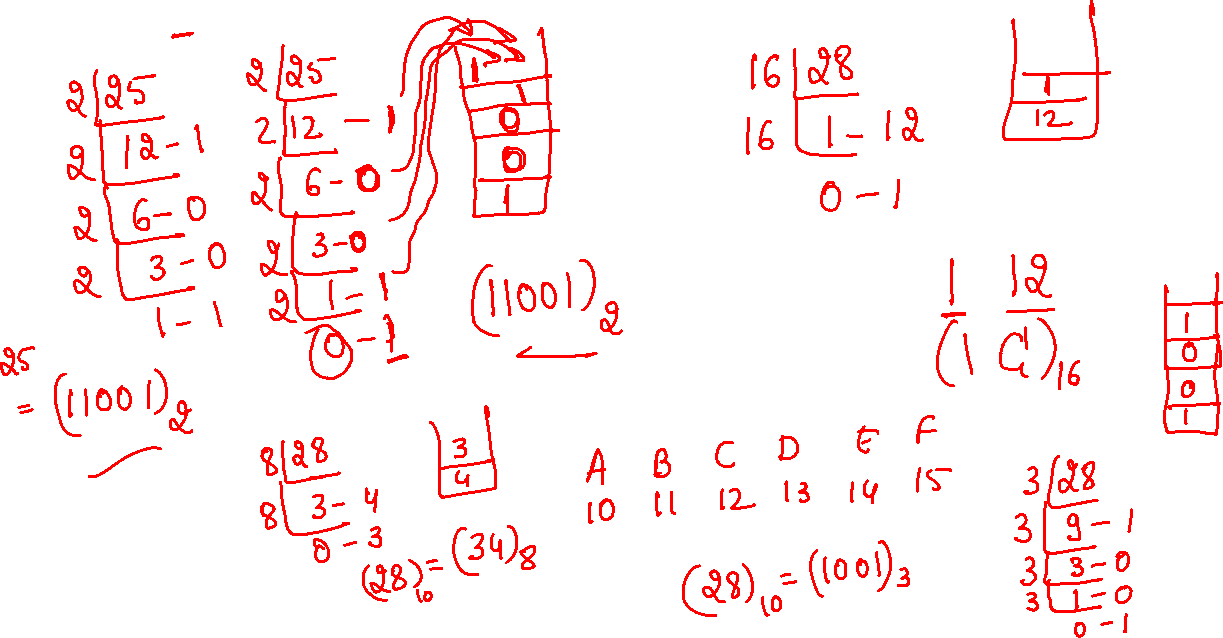 2 25
2 12 - 1
2 6 - 0
2 3 - 0
1 - 1
25
= (11001)2
2 25
2 12 - 1
2 6 - 0
2 3 - 0
2 1 - 1
0 - 1
1
1
0
0
1
(11001)2
16 28
16 1 - 12
0 - 1
1
12
1 12
(1 C)16
1
0
0
1
8 28
8 3 - 4
0 - 3
3
4
(28)10 = (34)8
A B C D E F
10 11 12 13 14 15
(28)10 = (1001)3
3 28
3 9 - 1
3 3 - 0
3 1 - 0
0 - 1